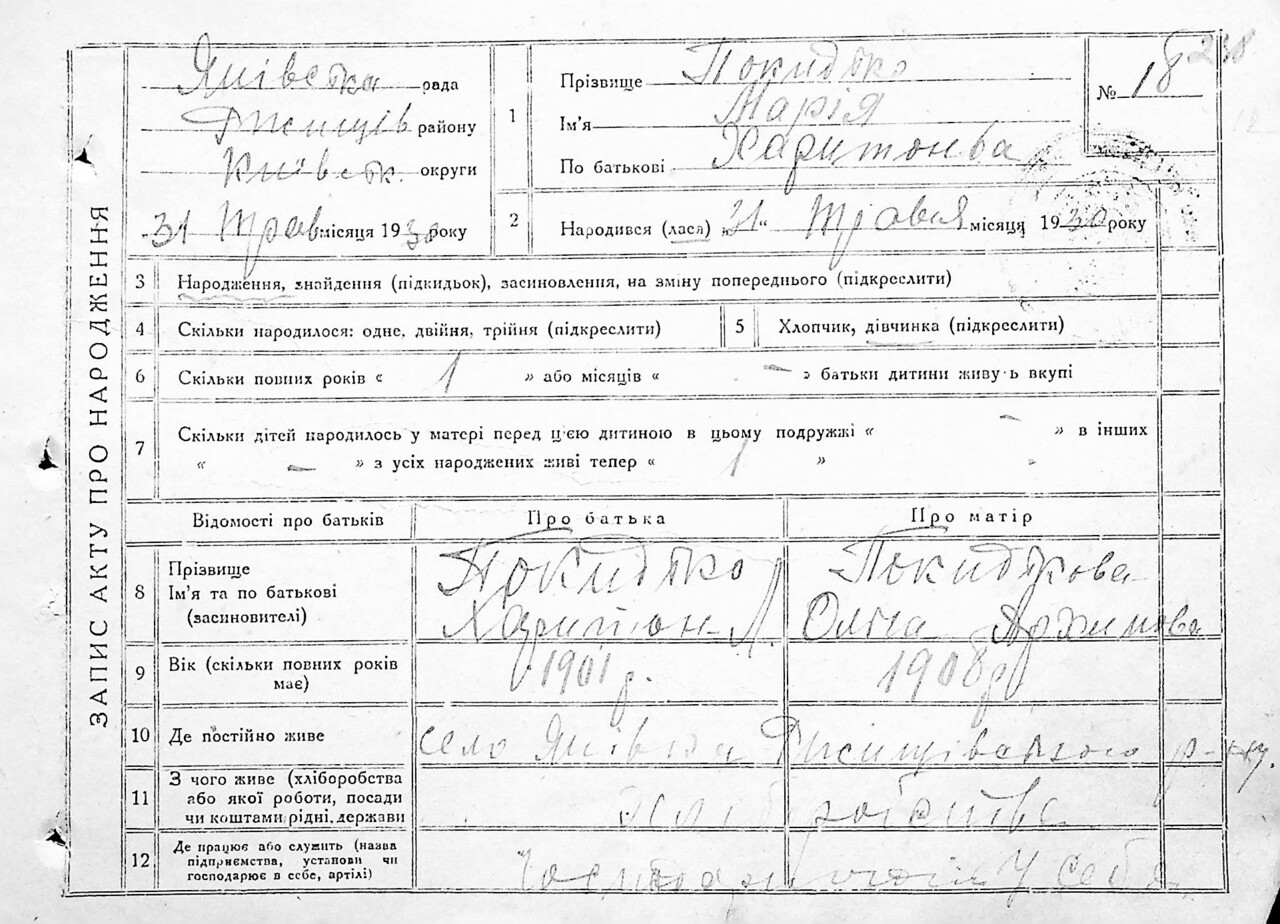 ЗАПИС АКТУ ПРО НАРОДЖЕННЯ
Янівська рада
Ржищів району
Київськ. округи
31 Трав місяця 1930 року
1
Прізвище Покидько
Ім'я Марія
По батькові Харитонва
№ 18
238
2
Народився (лася) „31" Травня місяця 1930 року
3 Народження, знайдення (підкидьок), засиновлення, на зміну попереднього (підкреслити)
4 Скільки народилося: одне, двійня, трійня (підкреслити) 5 Хлопчик, дівчинка (підкреслити)
6 Скільки повних років « 1 » або місяців « — » батьки дитини живуть вкупі
7 Скільки дітей народилось у матері перед цією дитиною в цьому подружжі « — » в інших
« — » з усіх народжених живі тепер « 1 »
Відомості про батьків Про батька Про матір
8 Прізвище
Ім'я та по батькові
(засиновителі)
Покидько
Харитон Л
Покидькова
Олна Архимовна
9 Вік (скільки повних років
має)
1901 р. 1908 р
10 Де постійно живе село Янівка Ржищівського р-ну.
11 З чого живе (хліборобства
або якої роботи, посади
чи коштами рідні, держави
Хліборобства
12 Де працює або служить (назва
підприємства, установи чи
господарює в себе, артілі)
у себе